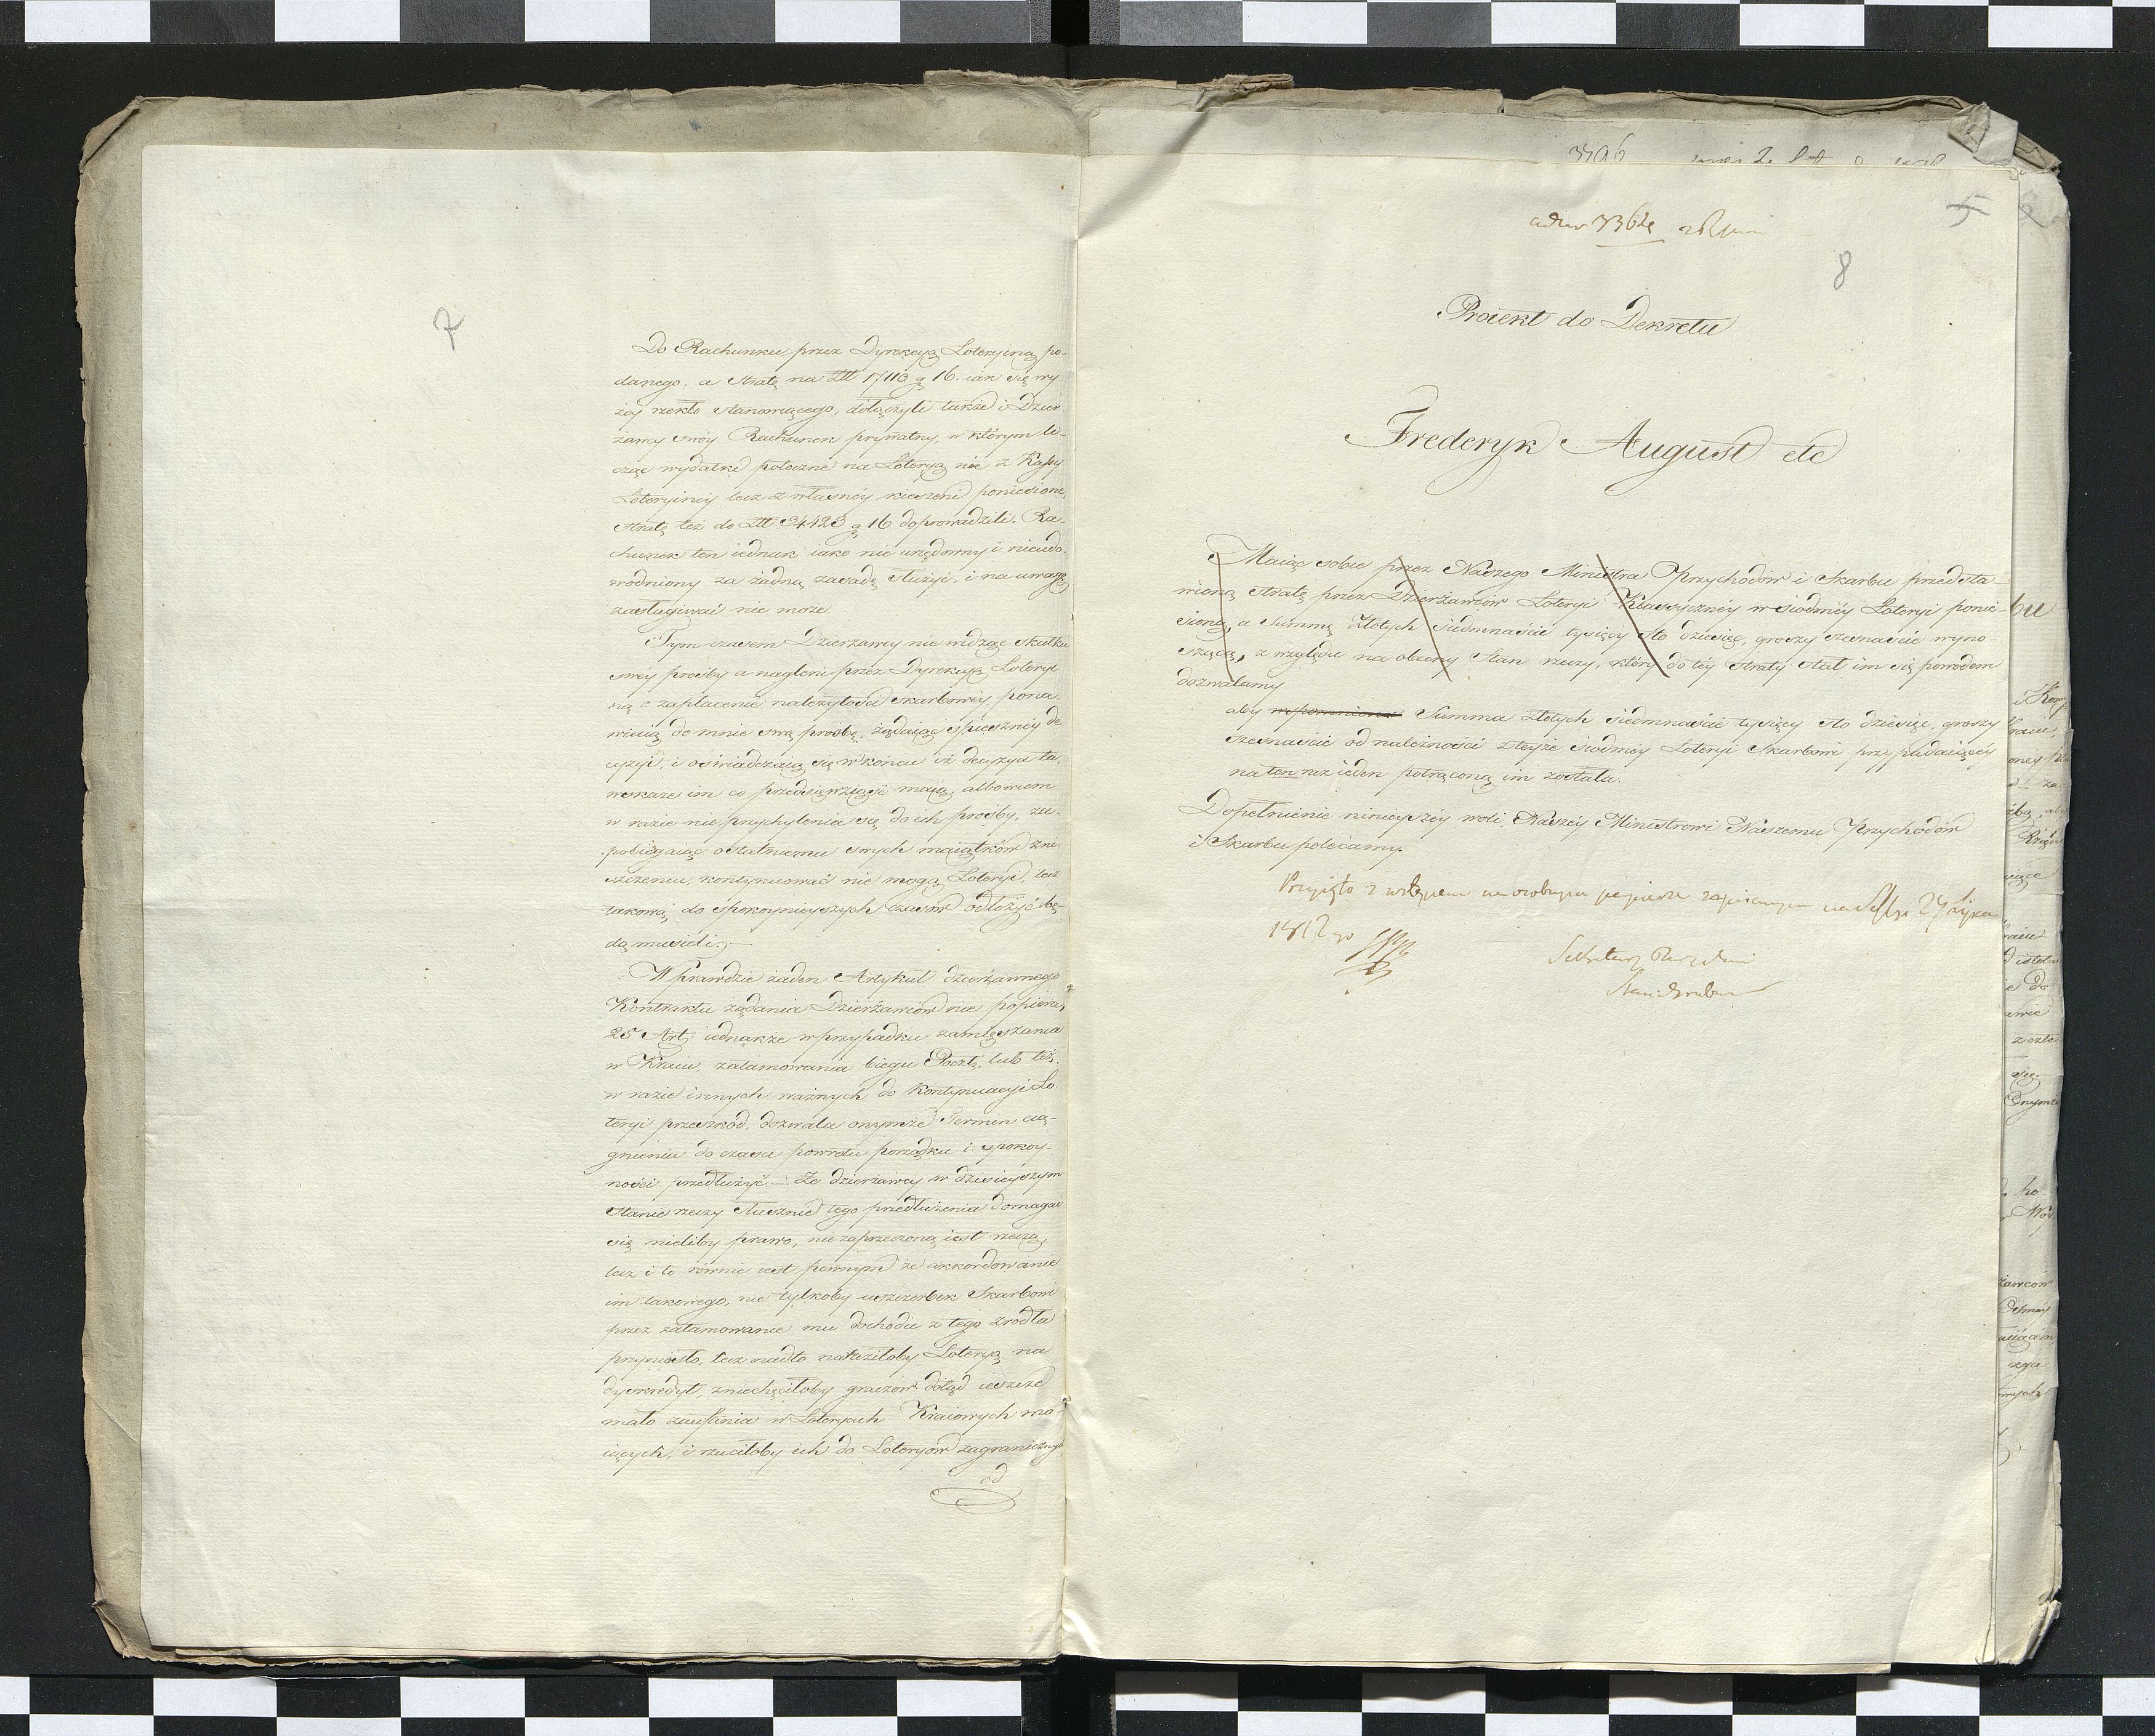 7
Do Rachunku przez Dyrekcyą Loteryiną po-
danego, a stratę na Złł 17110 g 16. iak się wy-
żey rzekło stanowiącego, dołączyli także i Dzier-
żawcy swoy Rachunek prywatny, w którym li-
cząc wydatki potoczne na Loteryą nie z Kassy
Loteryiney lecz z własney kieszeni poniesione,
stratę też do Złł 34423 g 16 doprowadzili. Ra-
chunek ten iednak iako nie urzędowny i nieudo-
wodniony za żadną zasadę służyć, i na uwagę
zasługiwać nie może.
Tym czasem Dzierżawcy nie widząc skutku
swey prośby a nagleni przez Dyrekcyą Loteryi-
ną o zapłacenie należytości Skarbowey, pona-
wiaią do mnie swą prośbę, żądaiąc spieszney de-
cyzyi, i oświadczaią się w końcu iż decyzya ta,
wskaże im co przedsięwziąść maią, albowiem
w razie nie przychylenia się do ich prośby, za-
pobiegaiąc ostatniemu swych maiątków zni-
szczeniu, kontynuować nie mogą Loteryi, lecz
takową do spokoynieyszych czasów odłożyć bę-
dą musieli.—
Wprawdzie żaden Artykuł dzierżawnego
Kontraktu żądania Dzierżawców nie popiera,
25 Art: iednakże w przypadku zamięszania
w Kraiu, zatamowania biegu Poczty, lub też
w razie innych ważnych do kontynuacyi Lo-
teryi przeszkod, dozwala onymże Termin cią-
gnienia do czasu powrotu porządku i spokoy-
ności przedłużyć.— Że dzierżawcy w dzisieyszym
stanie rzeczy słusznie tego przedłużenia domagać
się mieliby prawo, nie zaprzeczoną iest rzeczą,
lecz i to równie iest pewnym że akkordowanie
im takowego, nie tylkoby uszczerbek Skarbowi
przez zatamowanie mu dochodu z tego źrodła
przyniosło, lecz nadto naraziłoby Loteryą na
dyskredyt, zniechęciłoby graczów dotąd ieszcze
mało zaufania w Loteryach Kraiowych ma-
iących, i rzuciłoby ich do Loteryów zagranicznych
3396
5
8
Proiekt do Dekretu
Frederyk August etc
Maiąc sobie przez Naszego Ministra Przychodów i Skarbu przedsta-
wioną stratę przez Dzierżawców Loteryi Klassyczney w siódmey Loteryi ponie-
sioną, a Summę Złotych siedmnaście tysięcy sto dziesięć, groszy szesnaście wyno-
szącą, z względu na obecny Stan rzeczy, który do tey straty stał im się powodem
dozwalamy
aby wspomniona Summa złotych siedmnaście tysięcy sto dziesięć, groszy
szesnaście od należności z teyże siódmey Loteryi Skarbowi przypadaiącey
na ten raz ieden potrąconą im została.
Dopełnienie ninieyszey woli Naszey Ministrowi Naszemu Przychodów
i Skarbu polecamy.
Przyięto z wstępem na osobnym papierze zapisanym na Sessyi 24 Lipca
1812 go